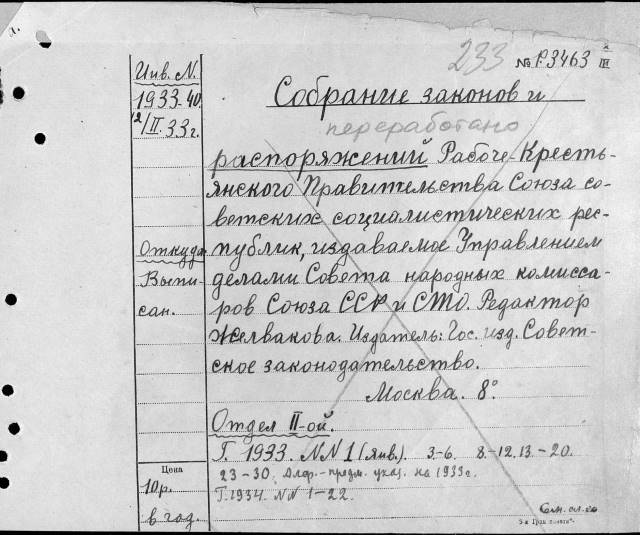 а.
233 № Р.3463 III
Инв. N.
1933-40.
12/II.33г.
Собрание законов и
переработано
распоряжений Рабоче-Кресть-
янского Правительства Союза со-
ветских социалистических рес-
Откуда
публик, издаваемое Управлением
Выпи-
делами Совета народных комисса-
сан.
ров Союза ССР и СТО. Редактор
Желвакова. Издатель: Гос. изд. Совет-
ское законодательство.
Москва. 8°.
Отдел II-ой.
Г. 1933. NN 1 (Янв.) 3-6. 8-12. 13-20.
Цена
23-30. Алф.-предм. указ. на 1933г.
10р.
Г.1934. NN 1-22.
в год.
См. сл. со